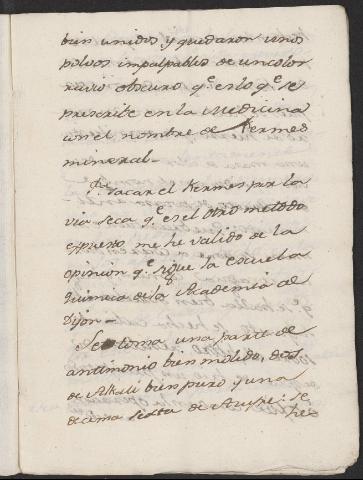 bien unidos y quedaron unos
polvos impalpables de un color
ruvio obscuro qe. es lo qe. se
prescribe en la Medicina
con el nombre de Kermes
mineral-
Pa. sacar el Kermes por la
via seca qe. es el otro metodo
expuesto me he valido de la
opinion qe. sigue la escuela
Quimica de la Academia de
Dijon-
Se toma una parte de
antimonio bien molido, dos
de Alkali bien puro y una
decima sexta de Azufre: se